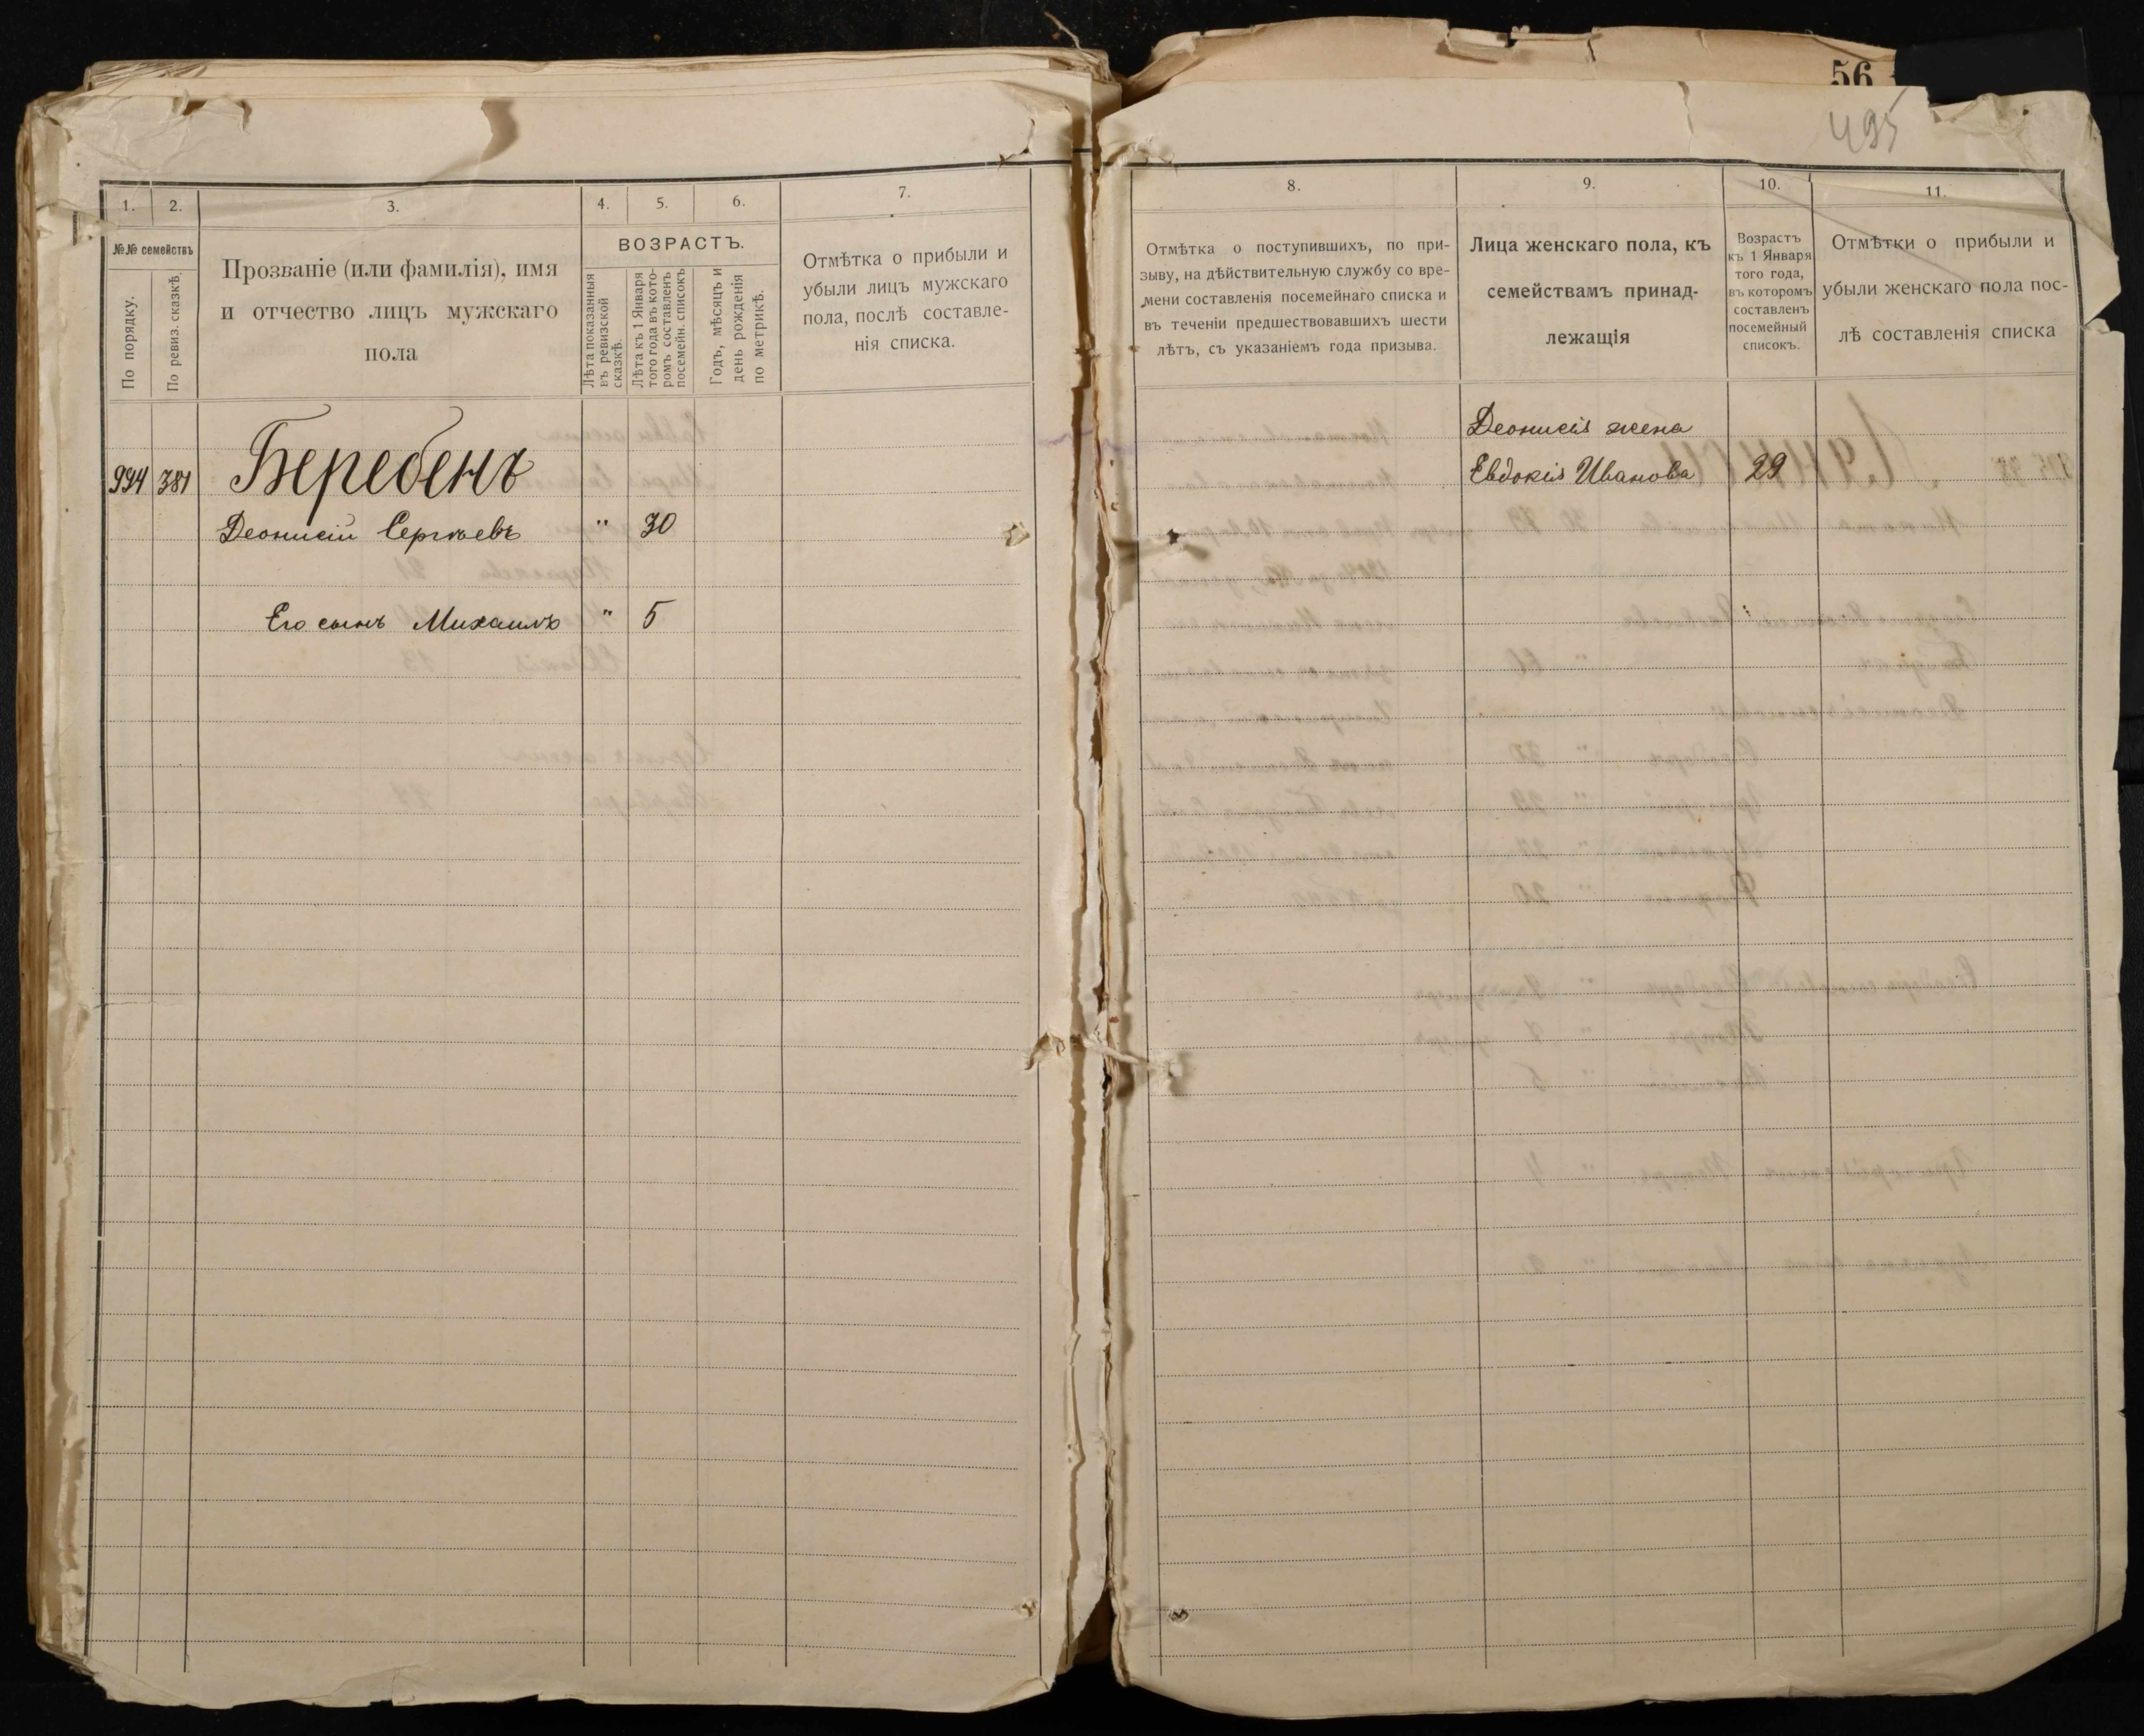 56
495
1.
2.
3.
4.
5.
6.
7.
№№ семействъ
По порядку.
По ревиз. сказкѣ.
Прозваніе (или фамилія), имя
и отчество лицъ мужскаго
пола
ВОЗРАСТЪ.
Лѣта показанныя
въ ревизской
сказкѣ.
Лѣта къ 1 Января
того года въ кото-
ромъ составленъ
посемейн. списокъ
Годъ, мѣсяцъ и
день рожденія
по метрикѣ.
Отмѣтка о прибыли и
убыли лицъ мужскаго
пола, послѣ составле-
нія списка.
994 381 Беребенъ
Деонисій Сергѣевъ " 30
Его сынъ Михаилъ " 5
8.
9.
10.
11.
Отмѣтка о поступившихъ, по при-
зыву, на дѣйствительную службу со вре-
мени составленія посемейнаго списка и
въ теченіи предшествовавшихъ шести
лѣтъ, съ указаніемъ года призыва.
Лица женскаго пола, къ
семействамъ принад-
лежащія
Возрастъ
къ 1 Января
того года,
въ которомъ
составленъ
посемейный
списокъ.
Отмѣтки о прибыли и
убыли женскаго пола пос-
лѣ составленія списка
Деонисія жена
Евдокія Иванова 29